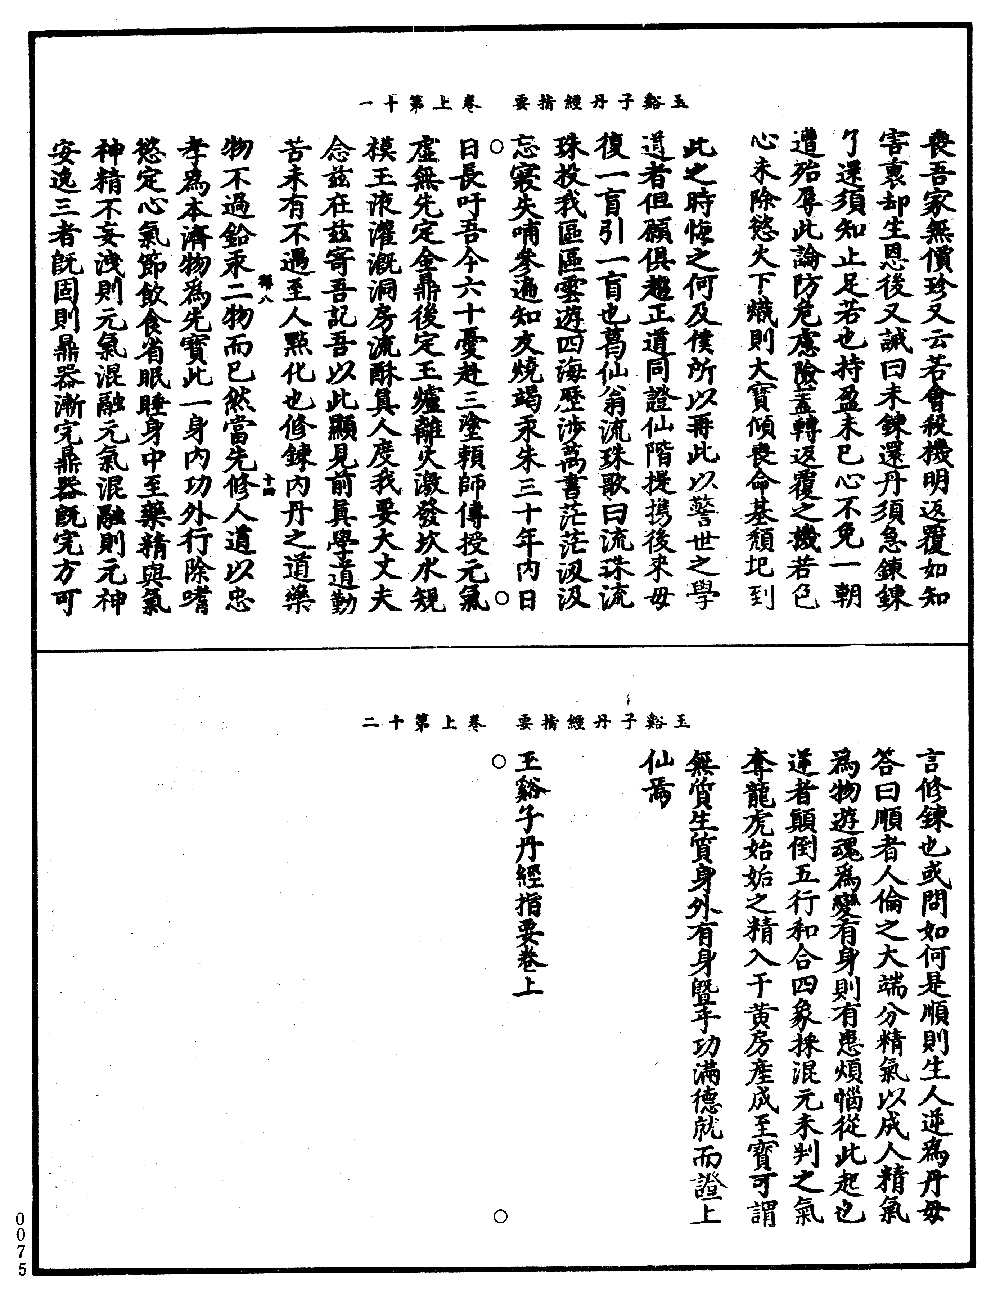 玉谿子丹經指要　卷上第十一
喪吾家無價珍又云若會殺機明返覆如知
害裏却生恩後又誡曰未鍊還丹須急鍊鍊
了還須知止足若也持盈未已心不免一朝
遭殆辱此論防危慮險蓋轉返覆之機若色
心未除慾火下熾則大寶傾喪命基頹圮到
此之時悔之何及僕所以再此以警世之學
道者但願俱趨正道同證仙階提携後來毋
復一盲引一盲也葛仙翁流珠歌曰流珠流
珠投我區區雲遊四海歷涉萬書茫茫汲汲
忘寢失哺參遍知友燒竭汞朱三十年內日
日長吁吾今六十憂赴三塗賴師傳授元氣
虛無先定金鼎後定玉爐離火激發坎水規
模玉液灌溉洞房流酥真人度我要大丈夫
念茲在茲寄吾記吾以此顯見前真學道勤
苦未有不遇至人點化也修鍊內丹之道藥
釋八　十四
物不過鉛汞二物而已然當先修人道以忠
孝為本濟物為先寶此一身內功外行除嗜
慾定心氣節飲食省眠睡身中至藥精與氣
神精不妄洩則元氣混融元氣混融則元神
安逸三者既固則鼎器漸完鼎器既完方可
玉谿子丹經指要　卷上第十二
言修鍊也或問如何是順則生人逆為丹母
答曰順者人倫之大端分精氣以成人精氣
為物遊魂為變有身則有患煩惱從此起也
逆者顛倒五行和合四象採混元未判之氣
奪龍虎始姤之精入于黃房產成至寶可謂
無質生質身外有身暨乎功滿德就而證上
仙焉
玉谿子丹經指要卷上
0075